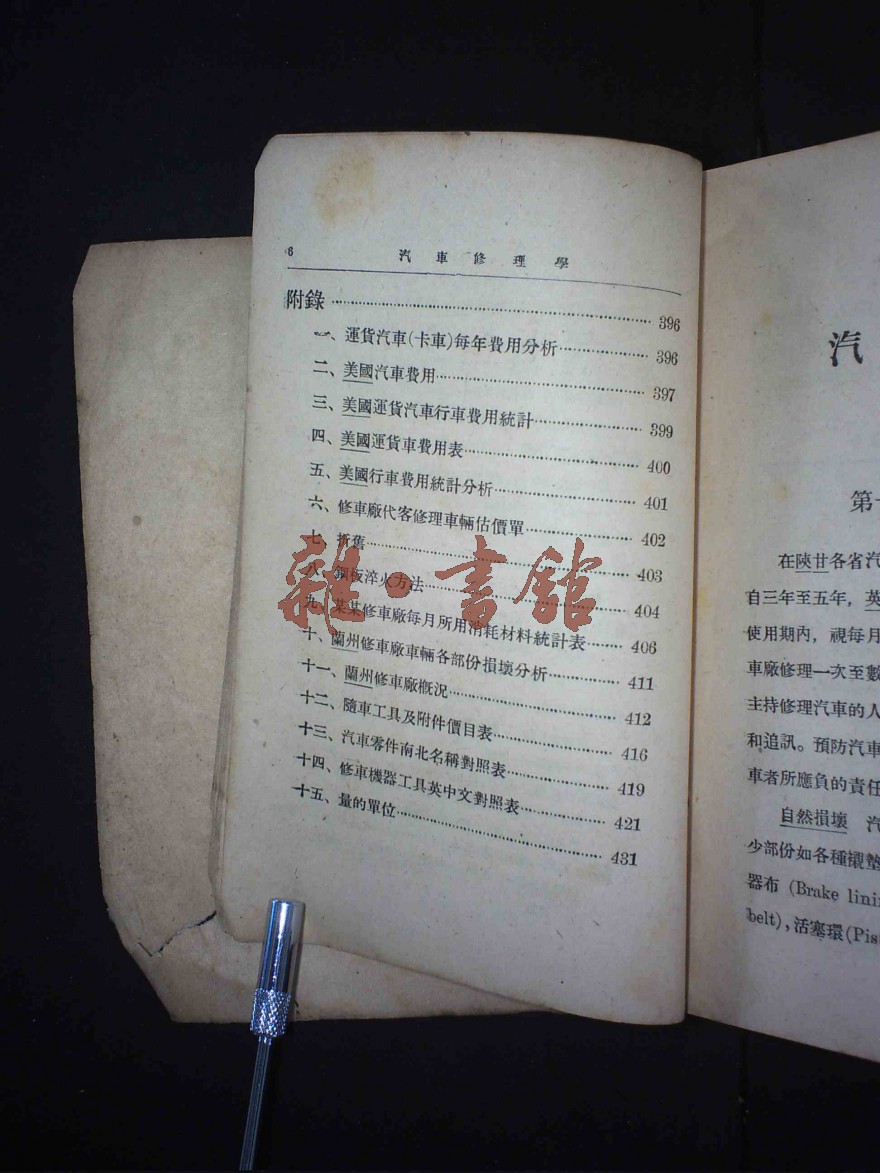 6 汽車修理學
附錄 396
一、運貨汽車(卡車)每年費用分析 396
二、美國汽車費用 397
三、美國運貨汽車行車費用統計 399
四、美國運貨車費用表 400
五、美國行車費用統計分析 401
六、修車廠代客修理車輛估價單 402
七、折舊 403
八、鋼板淬火方法 404
九、某某修車廠每月所用消耗材料統計表 406
十、蘭州修車廠車輛各部份損壞分析 411
十一、蘭州修車廠概況 412
十二、隨車工具及附件價目表 416
十三、汽車零件南北名稱對照表 419
十四、修車機器工具英中文對照表 421
十五、量的單位 431
雜·書館
汽
第
在陝甘各省汽
自三年至五年，英
使用期內，視每月
車廠修理一次至數
主持修理汽車的人
和追訊。預防汽車
車者所應負的責任
自然損壞 汽
少部份如各種襯墊
器布 (Brake lini
belt)，活塞環(Pis